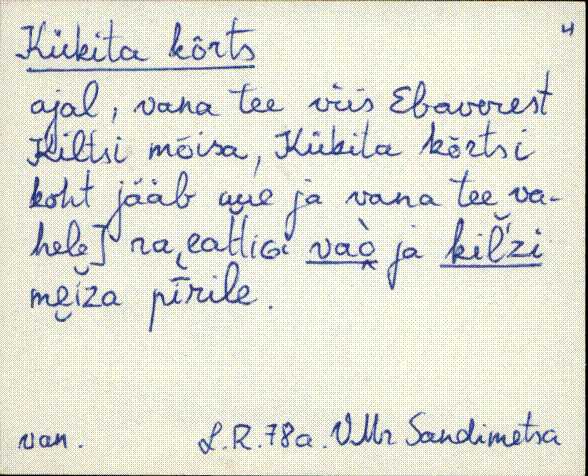 Kükita kõrts 4
ajal, vana tee viis Ebaverest
Kiltsi mõisa, Kükita kõrtsi
koht jääb uue ja vana tee va-
hele] ra, vao ja kil'zi
meiza pīrile.
van. L.R. 78a. VMr Sandimetsa